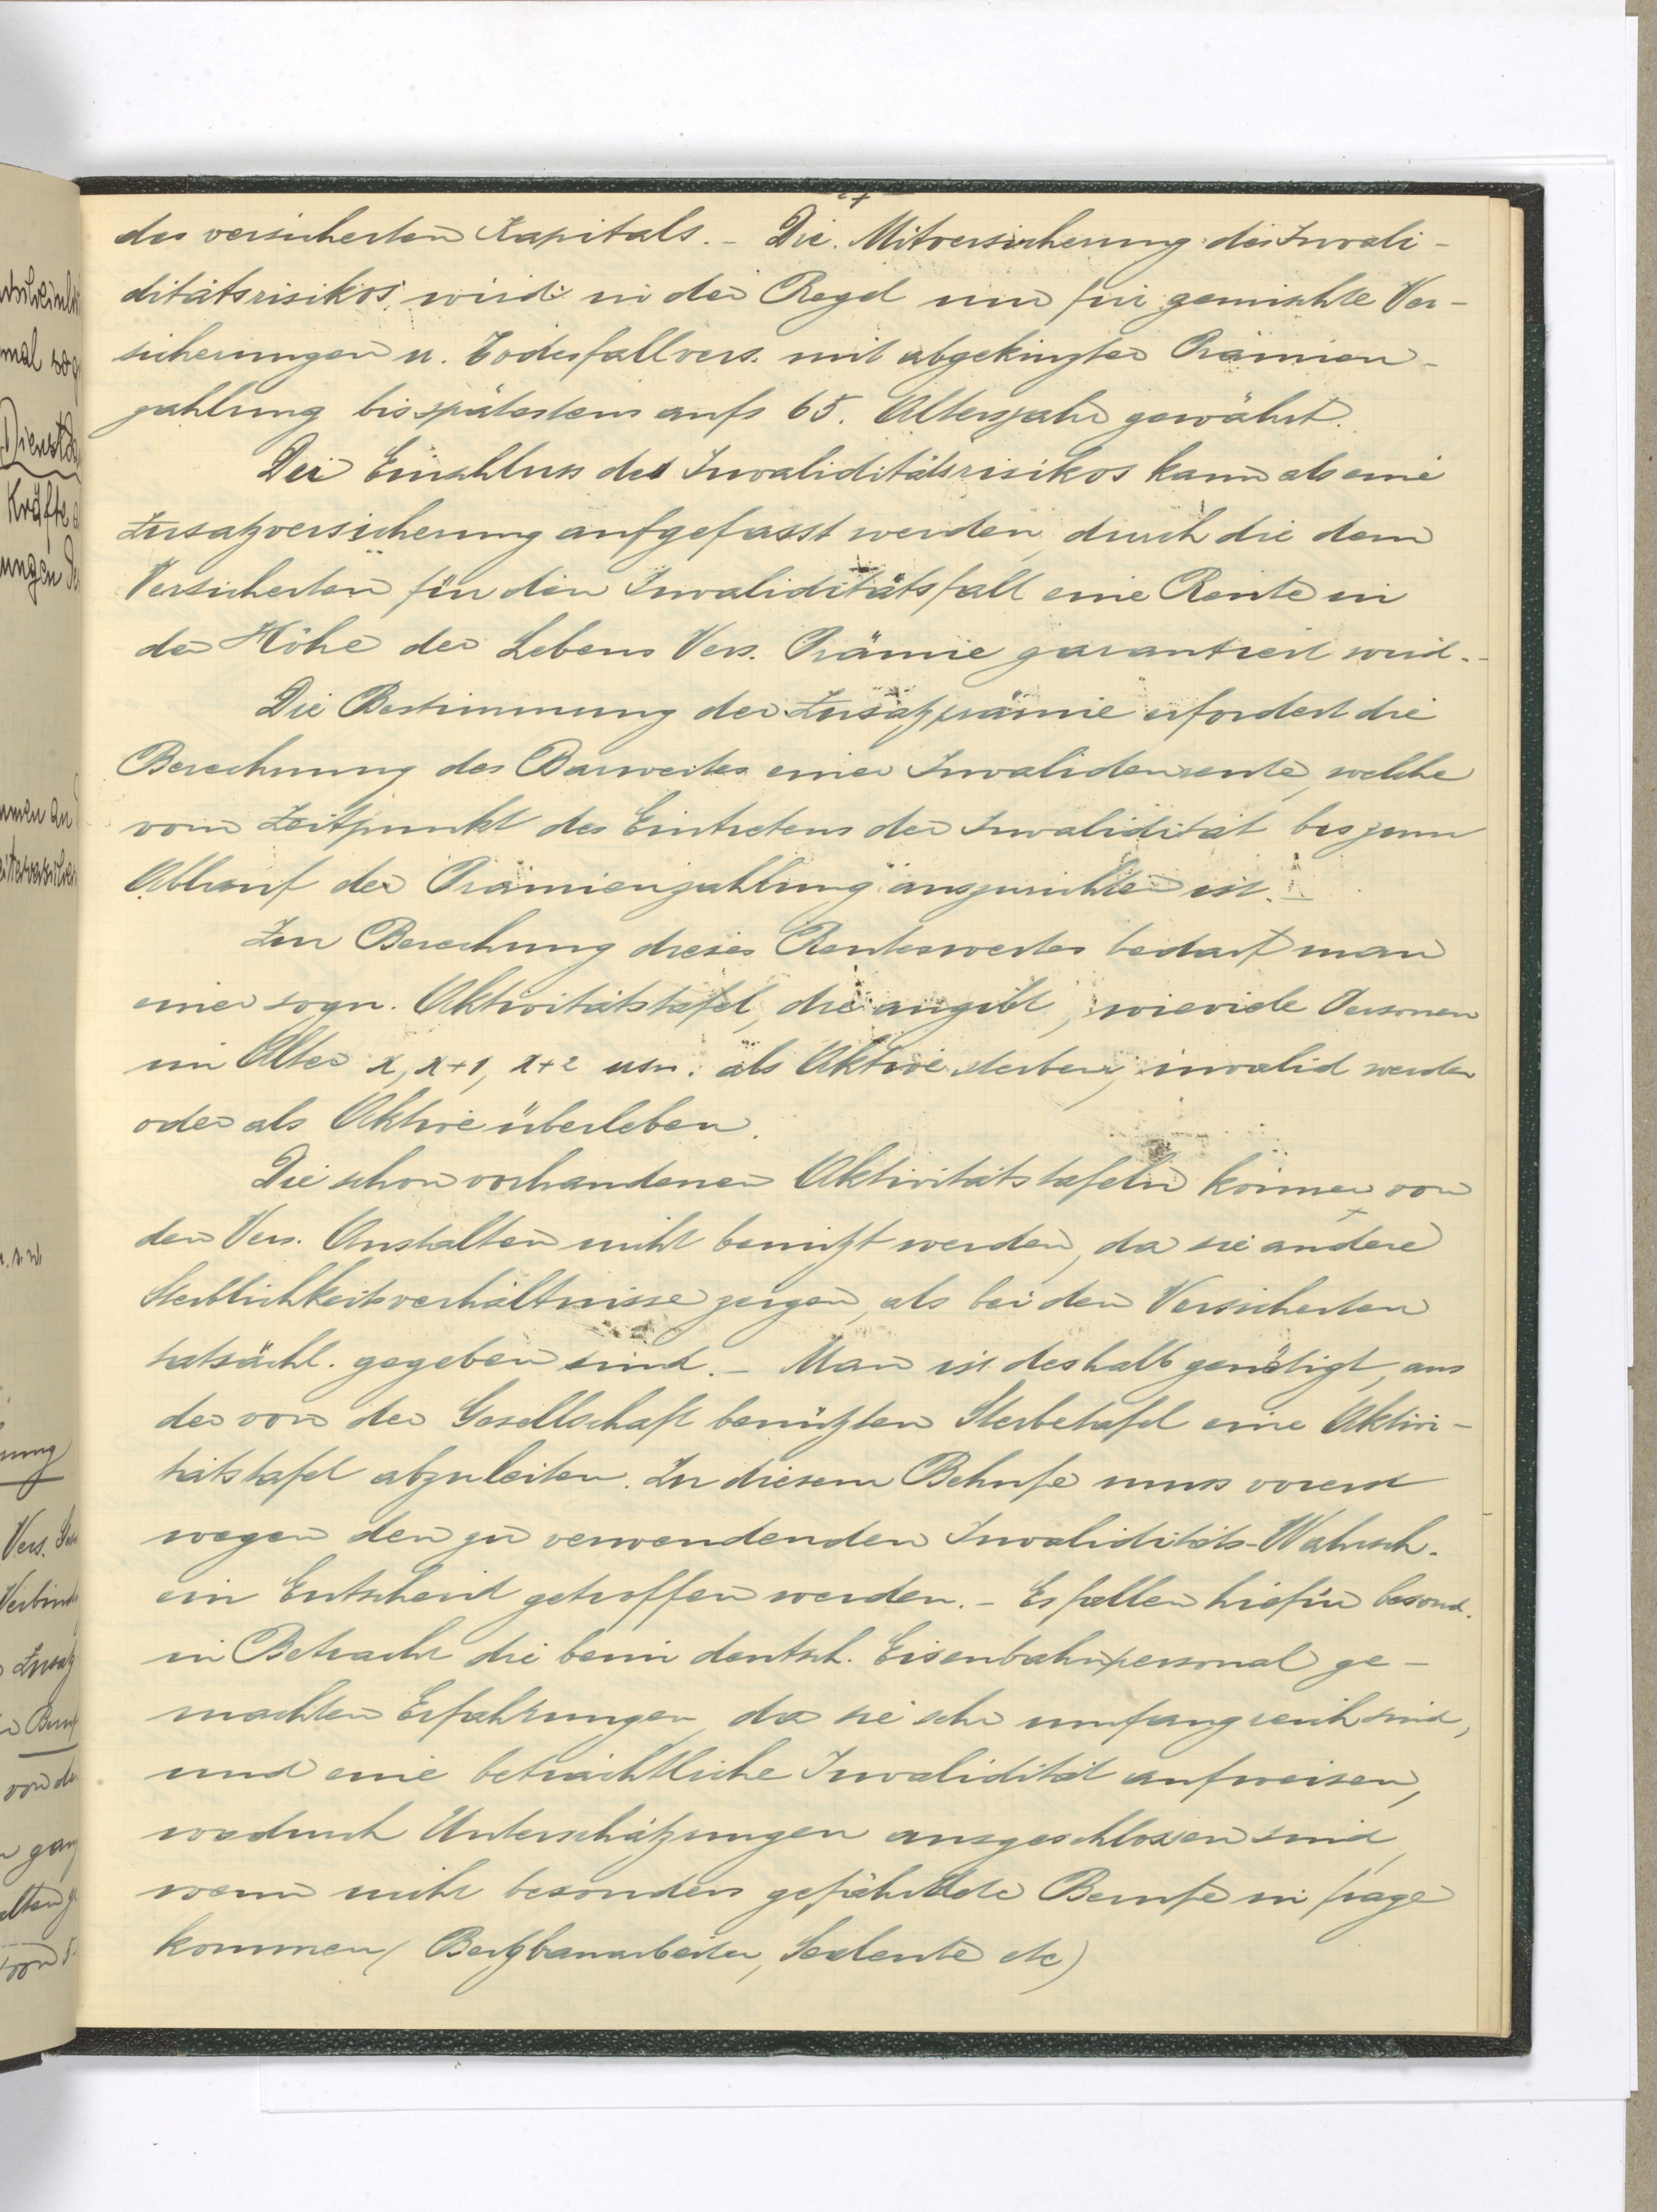 des versicherten Kapitals. – Die Mitversicherung des Invali-
ditätsrisikos wird in der Regel nur für gemischte Ver-
sicherungen u. Todesfallvers. mit abgekürzter Prämien-
zahlung bis spätestens aufs 65. Altersjahr gewährt.
Der Einschluss des Invaliditätsrisikos kann als eine
Zusatzversicherung aufgefasst werden, durch die dem
Versicherten für den Invaliditätsfall eine Rente in
der Höhe der Lebens Vers. Prämie garantiert wird. –
Die Bestimmung der Zusatzprämie erfordert die
Berechnung des Barwertes einer Invalidenrente, welche
vom Zeitpunkt des Eintretens der Invalidität bis zum
Ablauf der Prämienzahlung auszurichten ist. –
Zur Berechnung dieses Rentenwertes bedarf man
einer sogn. Aktivitätstafel, die angibt, wieviele Personen
im Alter x, x+1, x+2 usw. als Aktive sterben, invalid werden
oder als Aktive überleben.
Die schon vorhandenen Aktivitätstafeln können von
den Vers. Anstalten nicht benützt werden, da sie andere
Sterblichkeitsverhältnisse zeigen, als bei den Versicherten
tatsächl. gegeben sind. – Man ist deshalb genötigt, aus
der von der Gesellschaft benützten Sterbetafel eine Aktivi-
tätstafel abzuleiten. Zu diesem Behufe muss vorerst
wegen den zu verwendenden Invaliditäts-Wahrsch.
ein Entscheid getroffen werden. – Es fallen hiefür besond.
in Betracht die beim deutsch. Eisenbahnpersonal ge-
machten Erfahrungen, da sie sehr umfangreich sind,
und eine beträchtliche Invalidität aufweisen,
wodurch Unterschätzungen ausgeschlossen sind,
wenn nicht besonders gefährdete Berufe in frage
kommen (Bergbauarbeiter, Seeleute etc)